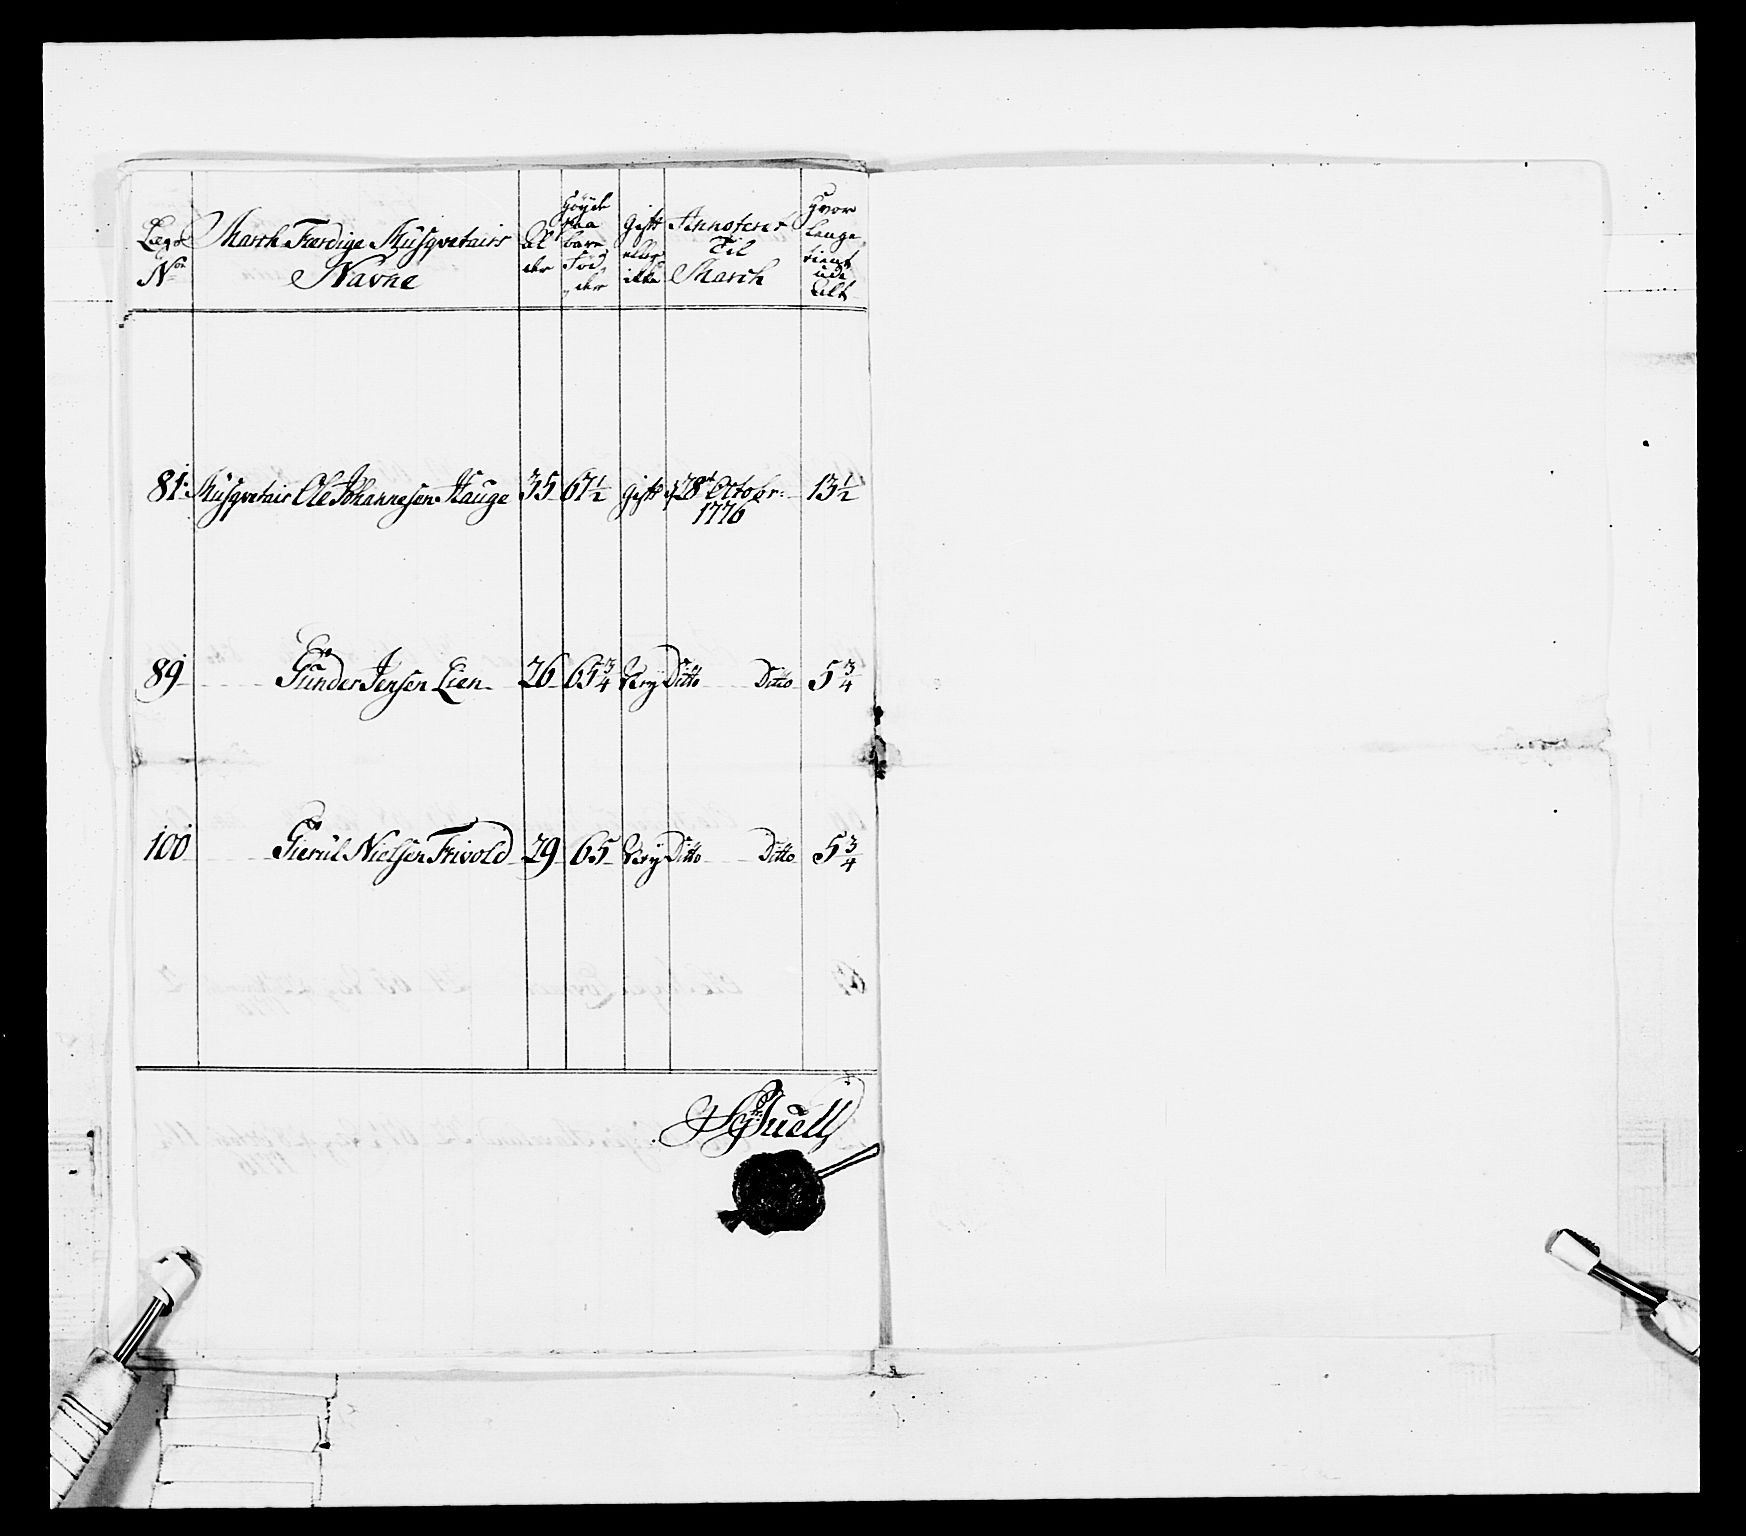 Lægs No
March Færdige Musqvetairs Navne
Al der
Höyde paa bare Fød, der
Gift eller ikke
Annoteret Til March
Hvor lenge tient udi Alt
81 Musqvetair Ole Johannesen Hauge 35 67 1/2 Gift d 28t Octobr: 1776 13 1/2
89 Gunder Jensen Lien 26 65 3/4 Ditto Ditto 5 3/4
100 Gierul Nielsen Frivold 29 65 Ditto Ditto 5 3/4
Juell